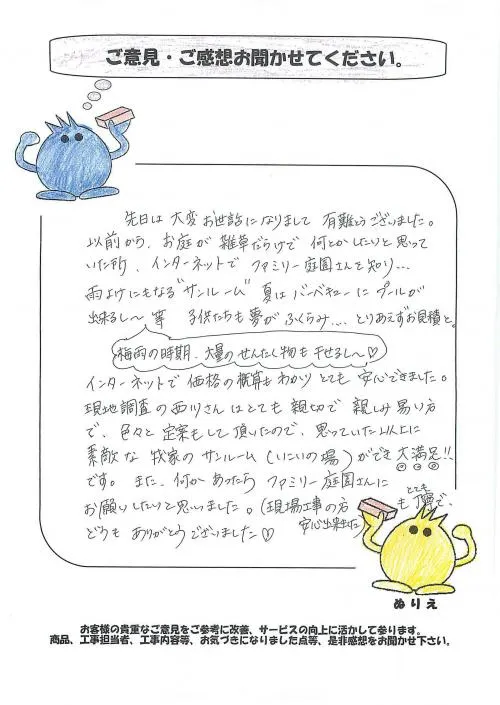 ご意見・ご感想お聞かせてください。
先日は 大変お世話になりまして 有難うございました。
以前から、お庭が 雑草だらけで 何とかしたいと思って
いた所、インターネットで ファミリー庭園さんを知り…
雨よけにもなる"サンルーム" 夏は バーベキューに プールが
出来るし〜 等 子供たちも夢がふくらみ…. とりあえずお見積と。
梅雨の時期、大量の せんたく物も 干せるし〜♡
インターネットで 価格の概算もわかり とても 安心できました。
現地調査の西川さんは とても 親切で 親しみ易い方
で、色々と 定案もして頂いたので、思っていた以上に
素敵な 我家の サンルーム (いこいの場) ができ 大満足!!
です。 また、何かあったら ファミリー庭園さんに
お願いしたいと思いました。(現場工事の方も とても丁寧で、
安心出来ました)
どうも ありがとうございました♡
ぬりえ
お客様の貴重なご意見をご参考に改善、サービスの向上に活かして参ります。
商品、工事担当者、工事内容等、お気づきになりました点等、是非感想をお聞かせ下さい。